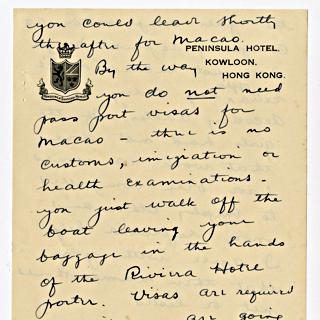 you could leave shortly
thereafter for Macao.
PENINSULA HOTEL.
KOWLOON,
HONG KONG.
By the way
you do not need
pass port visas for
Macao - there is no
customs, imigration or
health examinations -
you just walk off the
boat leaving your
baggage in the hands
of the Riviera Hotel
porter. Visas are required
are going